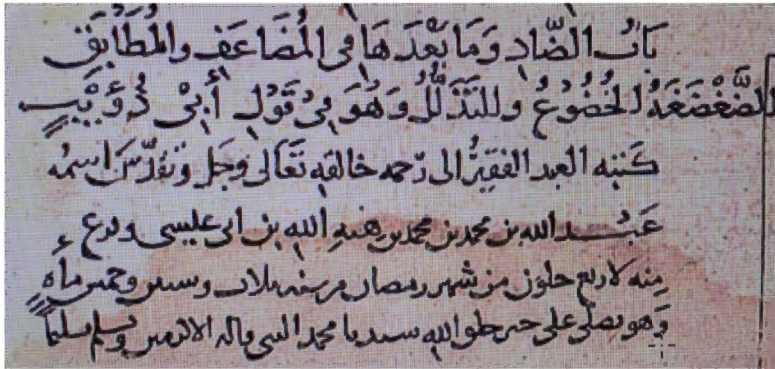 بَابُ الضَّادِ وَمَا بَعْدَهَا فِي الْمُضَاعَفِ وَالْمُطَابَقِ
الضَّعْضَعَةُ الخُضُوعُ وَالتَّذَلُّلُ وَهُوَ فِي قَوْلِ أَبِي ذُؤَيْبٍ
كَتَبَه العبد الفقيرُ الى رَحمه خالقه تَعَالى وَجَل وَتقَدَّسَ اسمُه
عَبْد الله بن محمد بن محمد بن هبهِ الله بن ابى عليسى وفرع
مِنه لاربع خلون من شهر رمضان من سنه ثلاث وستين وخمس مأهٍ
وَهو يصلّى على خير خلق الله سيدنا محمد النبى واله الاكرمين ويسلم تسليماً